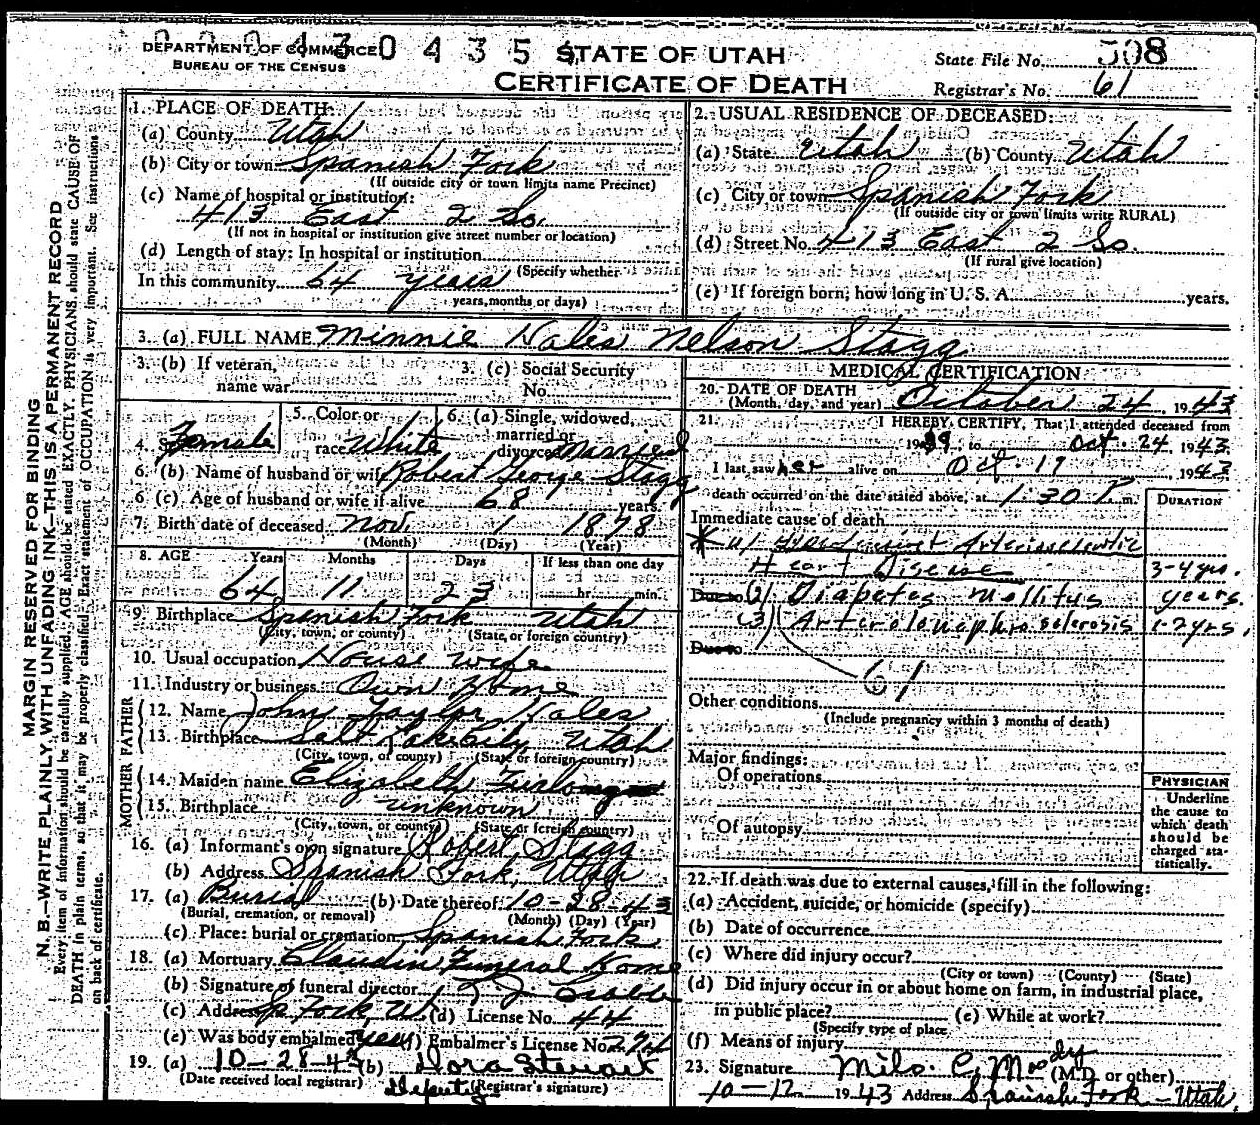 0 0 0 4 3 0 0 4 3 5
DEPARTMENT OF COMMERCE
BUREAU OF THE CENSUS
STATE OF UTAH
CERTIFICATE OF DEATH
State File No. 508
Registrar's No. 61
MARGIN RESERVED FOR BINDING
N. B.—WRITE PLAINLY WITH UNFADING INK—THIS IS A PERMANENT RECORD
Every item of information should be carefully supplied. AGE should be stated EXACTLY. PHYSICIANS should state CAUSE OF
DEATH in plain terms, so that it may be properly classified. Exact statement of OCCUPATION is very important. See instructions
on back of certificate.
1. PLACE OF DEATH:
(a) County Utah
(b) City or town Spanish Fork
(If outside city or town limits name Precinct)
(c) Name of hospital or institution:
413 East 2 So.
(If not in hospital or institution give street number or location)
(d) Length of stay: In hospital or institution
(Specify whether
In this community 64 years
years, months or days)
2. USUAL RESIDENCE OF DECEASED:
(a) State Utah (b) County Utah
(c) City or town Spanish Fork
(If outside city or town limits write RURAL)
(d) Street No. 413 East 2 So.
(If rural give location)
(e) If foreign born, how long in U. S. A. years.
3. (a) FULL NAME Minnie Hales Nelson Stagg
3. (b) If veteran,
name war
3. (c) Social Security
No.
4. Female
5. Color or
race White
6. (a) Single, widowed,
married or
divorced Married
6. (b) Name of husband or wife Robert George Stagg
6 (c). Age of husband or wife if alive 68 years
7. Birth date of deceased Nov. 1 1878
(Month) (Day) (Year)
8. AGE Years Months Days If less than one day
64 11 23 hr. min.
9. Birthplace Spanish Fork Utah
(City, town, or county) (State, or foreign country)
10. Usual occupation House wife
11. Industry or business Own Home
FATHER
12. Name John Taylor Hales
13. Birthplace Salt Lake City Utah
(City, town, or county) (State or foreign country)
MOTHER
14. Maiden name Elizabeth
15. Birthplace unknown
(City, town, or county) (State or foreign country)
16. (a) Informant's own signature Robert Stagg
(b) Address Spanish Fork, Utah
17. (a) Burial (b) Date thereof 10-28-43
(Burial, cremation, or removal) (Month) (Day) (Year)
(c) Place: burial or cremation Spanish Fork
18. (a) Mortuary Claudin Funeral Home
(b) Signature of funeral director
(c) Address Sp Fork, Ut (d) License No. 44
(e) Was body embalmed yes (f) Embalmer's License No.
19. (a) 10-28-43 (b) Dora Stewart
(Date received local registrar) Deputy (Registrar's signature)
MEDICAL CERTIFICATION
20. DATE OF DEATH
(Month, day, and year) October 24, 1943
21. I HEREBY CERTIFY, That I attended deceased from
1939 to Oct. 24, 1943
I last saw her alive on Oct. 19 1943
death occurred on the date stated above, at 1:30 P. m.
DURATION
Immediate cause of death
Arteriosclerotic
Heart Disease 3-4 yrs.
Due to (2) Diabetes Mellitus years.
(3) Arteriolonephrosclerosis 1-2 yrs.
Due to
61
Other conditions
(Include pregnancy within 3 months of death)
Major findings:
Of operations
Of autopsy
PHYSICIAN
Underline
the cause to
which death
should be
charged sta-
tistically.
22. If death was due to external causes, fill in the following:
(a) Accident, suicide, or homicide (specify)
(b) Date of occurrence
(c) Where did injury occur?
(City or town) (County) (State)
(d) Did injury occur in or about home on farm, in industrial place,
in public place? (e) While at work?
(Specify type of place
(f) Means of injury
23. Signature Milo C. Moody
(M.D. or other)
10-12 1943 Address Spanish Fork - Utah.